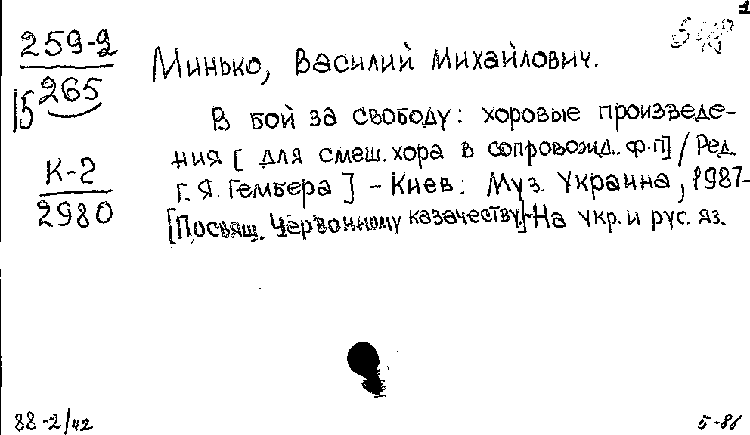 1
259-2
265
15
К-2
2980
Минько, Василий Михайлович.
В бой за свободу: хоровые произведе-
ния [ для смеш. хора в сопровожд. ф.п] / Ред.
Г. Я. Гембера ] - Киев: Муз. Украина, 1987-
[Посвящ. Червонному казачеству]-На укр. и рус. яз.
88-2/42
5-86